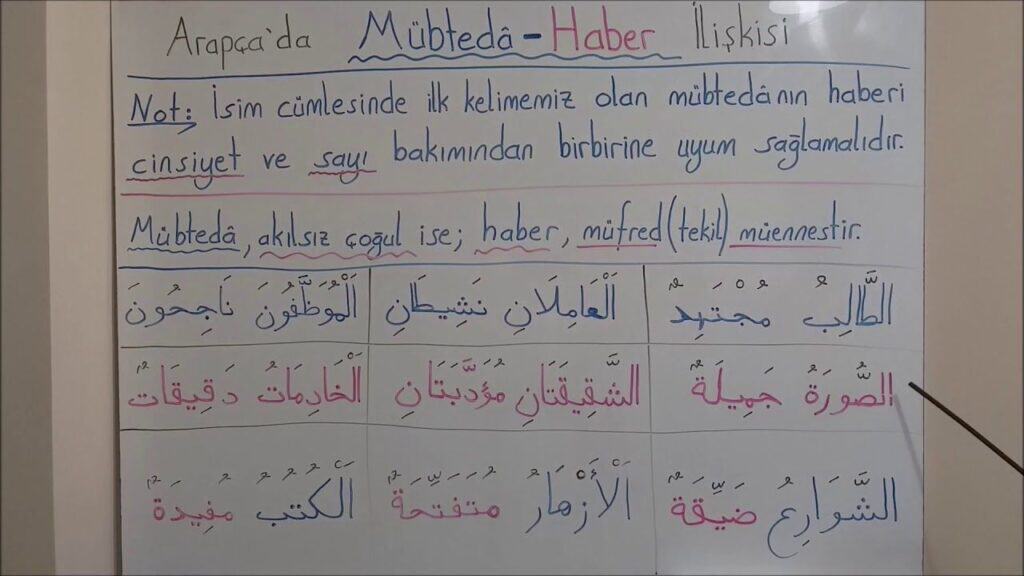 Arapça'da Mübtedâ - Haber İlişkisi
Not: İsim cümlesinde ilk kelimemiz olan mübtedânın haberi
cinsiyet ve sayı bakımından birbirine uyum sağlamalıdır.
Mübtedâ, akılsız çoğul ise; haber, müfred (tekil) müennestir.
الطَّالِبُ مُجْتَهِدٌ اَلْعَامِلَانِ نَشِيطَانِ اَلْمُوَظَّفُونَ نَاجِحُونَ
الصُّورَةُ جَمِيلَةٌ الشَّقِيقَتَانِ مُؤَدَّبَتَانِ اَلْخَادِمَاتُ دَقِيقَاتٌ
الشَّوَارِعُ ضَيِّقَةٌ اَلْأَزْهَارُ مُتَفَتِّحَةٌ اَلْكُتُبُ مُفِيدَةٌ